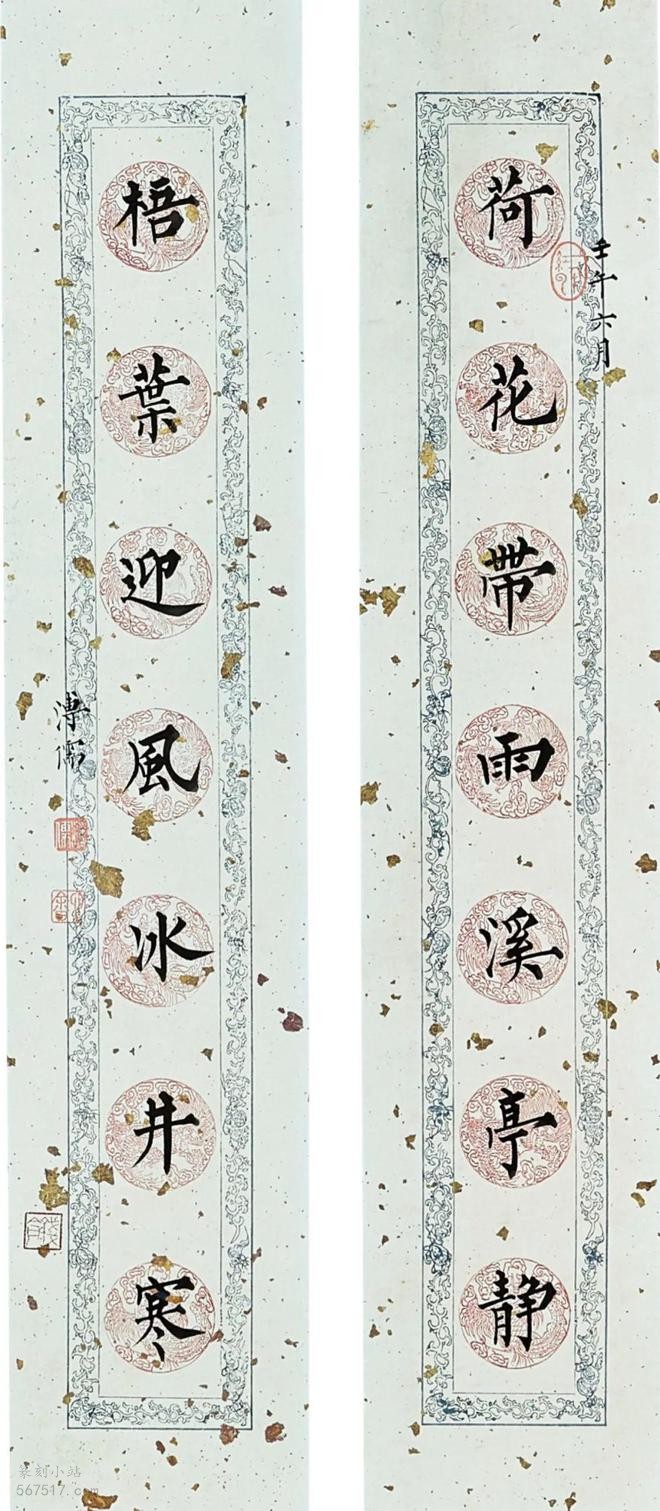 荷花帶雨溪亭静
壬午六月
梧葉迎風冰井寒
溥儒
篆刻小站
567517.com